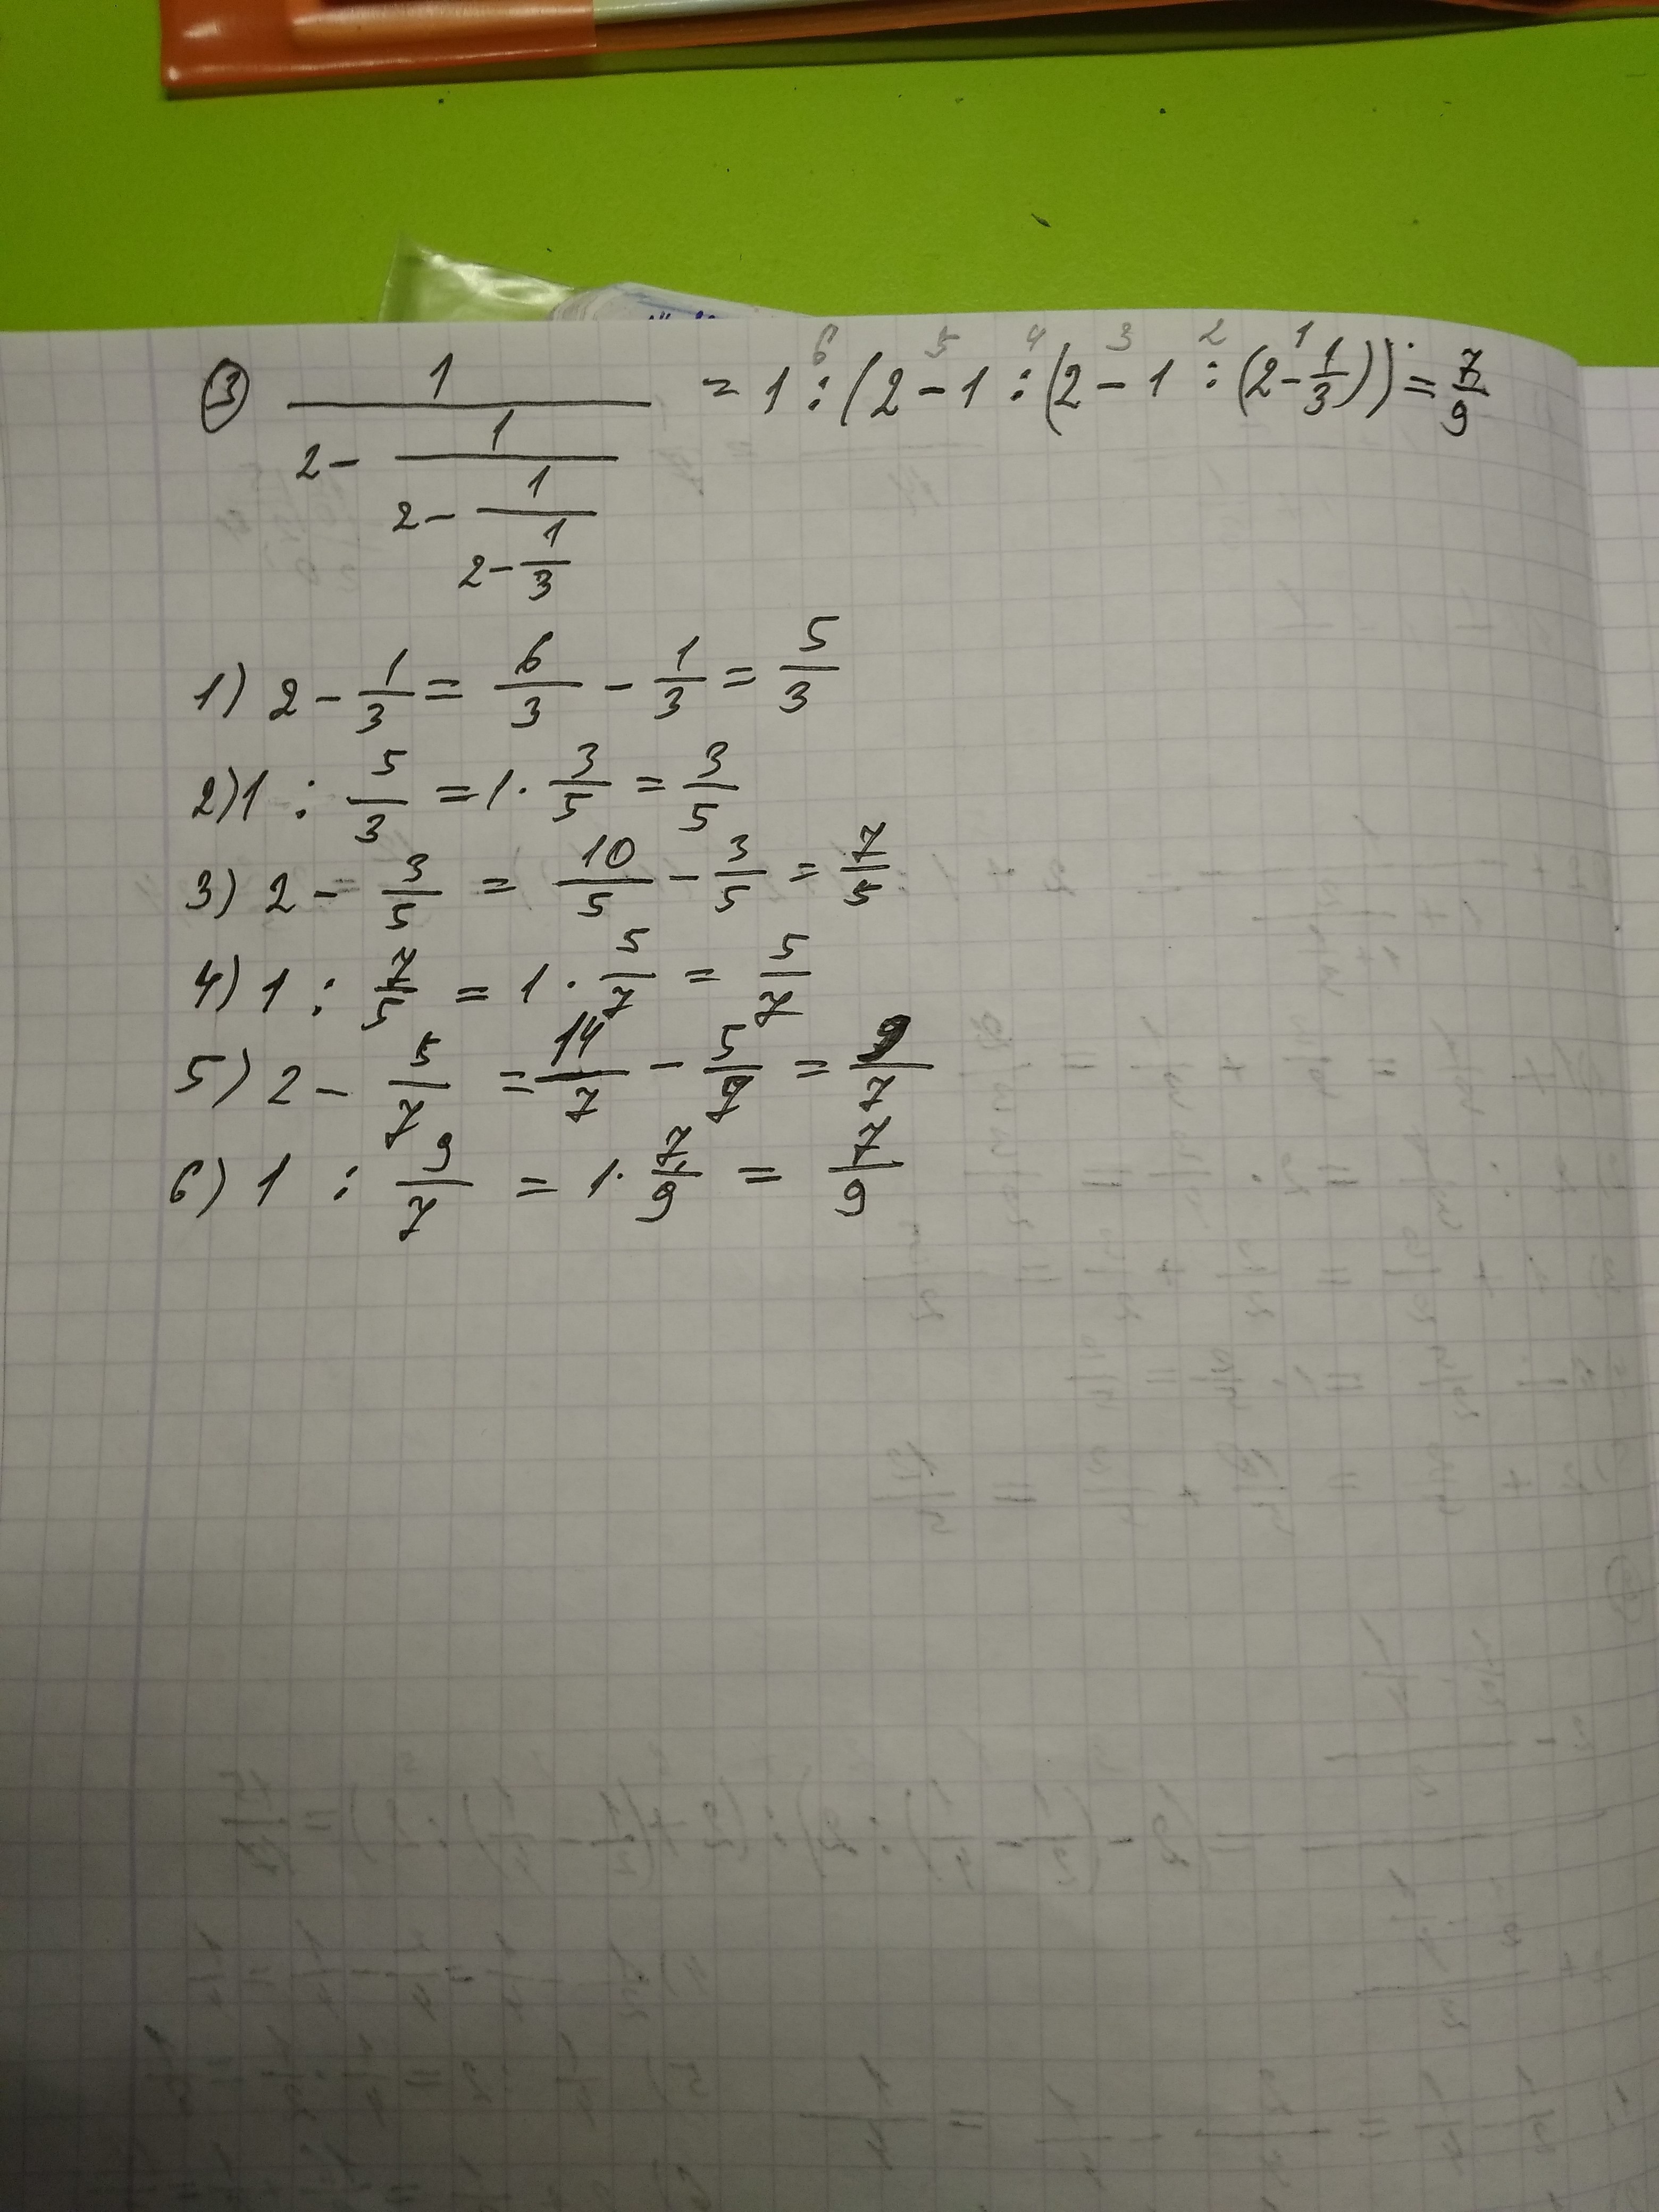 ③ 1/(2 - 1/(2 - 1/(2 - 1/3))) = 1 : (2 - 1 : (2 - 1 : (2 - 1/3)) = 7/9
6 5 4 3 2 1
1) 2 - 1/3 = 6/3 - 1/3 = 5/3
2) 1 : 5/3 = 1 · 3/5 = 3/5
3) 2 - 3/5 = 10/5 - 3/5 = 7/5
4) 1 : 7/5 = 1 · 5/7 = 5/7
5) 2 - 5/7 = 14/7 - 5/7 = 9/7
6) 1 : 9/7 = 1 · 7/9 = 7/9